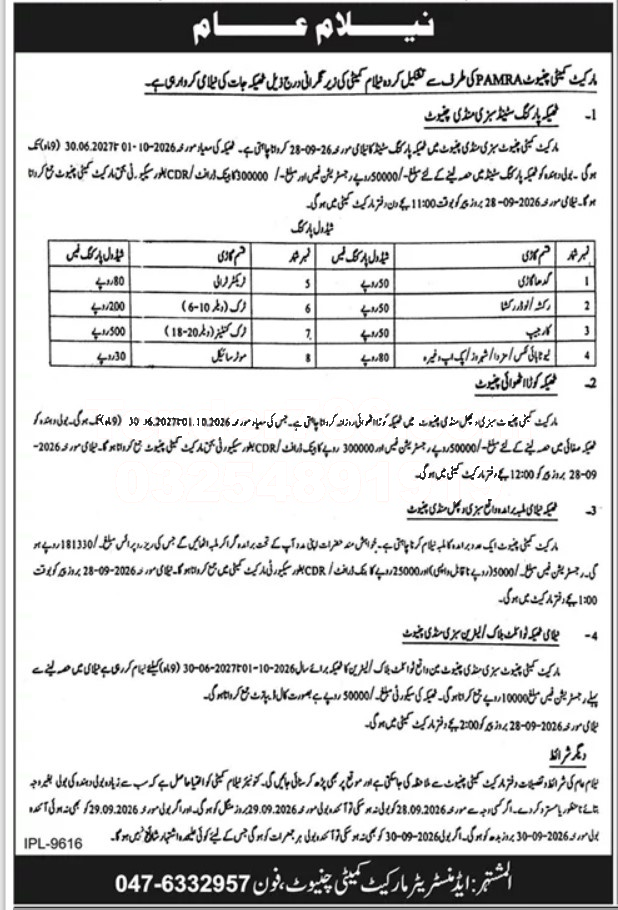 نیلام عام
مارکیٹ کمیٹی چنیوٹ PAMRA کی طرف سے تشکیل کردہ نیلام کمیٹی کی زیر نگرانی درج ذیل ٹھیکہ جات کی نیلامی کروا رہی ہے۔
1- ٹھیکہ پارکنگ سٹینڈ سبزی منڈی چنیوٹ
مارکیٹ کمیٹی چنیوٹ سبزی منڈی چنیوٹ میں ٹھیکہ پارکنگ سٹینڈ کا نیلامی مورخہ 26-09-28 کروانا چاہتی ہے۔ ٹھیکہ کی معیاد مورخہ 01-10-2026 تا 30.06.2027 (9ماہ) تک
ہوگی۔ بولی دہندہ کو ٹھیکہ پارکنگ سٹینڈ میں حصہ لینے کے لئے مبلغ -/50000 روپے رجسٹریشن فیس اور مبلغ -/300000 کا بینک ڈرافٹ/CDR بطور سیکیورٹی بحق مارکیٹ کمیٹی چنیوٹ جمع کروانا
ہوگا۔ نیلامی مورخہ 28-09-2026 بروز پیر کو بوقت 11:00 بجے دن دفتر مارکیٹ کمیٹی میں ہوگی۔
شیڈول پارکنگ
نمبر شمار قسم گاڑی شیڈول پارکنگ فیس نمبر شمار قسم گاڑی شیڈول پارکنگ فیس
1 گدھا گاڑی 50روپے 5 ٹریکٹر ٹرالی 80روپے
2 رکشہ/لوڈر رکشا 50روپے 6 ٹرک (6-10 ویلر) 200روپے
3 کار جیپ 50روپے 7 ٹرک کنٹینر (18-20 ویلر) 500روپے
4 ٹیوٹا ہائی لکس/مزدا/شہروز/پک اپ وغیرہ 80روپے 8 موٹر سائیکل 30روپے
2- ٹھیکہ کوڑا اٹھوائی چنیوٹ
مارکیٹ کمیٹی چنیوٹ سبزی و پھل منڈی چنیوٹ میں ٹھیکہ کوڑا اٹھوائی روزانہ کروانا چاہتی ہے۔ جس کی معیاد مورخہ 01.10.2026 تا 30.06.2027 (9ماہ) تک ہوگی۔ بولی دہندہ کو
ٹھیکہ صفائی میں حصہ لینے کے لئے مبلغ -/50000 روپے رجسٹریشن فیس اور 300000 روپے کا بینک ڈرافٹ/CDR بطور سیکیورٹی بحق مارکیٹ کمیٹی چنیوٹ جمع کروانا ہوگا۔ نیلامی مورخہ 2026-
09-28 بروز پیر کو 12:00 بجے دفتر مارکیٹ کمیٹی میں ہوگی۔
3- ٹھیکہ نیلامی ملبہ برامدہ واقع سبزی و پھل منڈی چنیوٹ
مارکیٹ کمیٹی چنیوٹ ایک عدد برامدہ کا ملبہ نیلام کرنا چاہتی ہے۔ خواہش مند حضرات اپنی مدد آپ کے تحت برامدہ گرا کر ملبہ اٹھائیں گے جس کی ریزرو پرائس مبلغ -/181330 روپے ہو
گی۔ رجسٹریشن فیس مبلغ -/5000 (روپے ناقابل واپسی) اور 25000 روپے کا بنک ڈرافٹ/CDR بطور سیکیورٹی مارکیٹ کمیٹی میں جمع کروانا ہوگا۔ نیلامی مورخہ 28-09-2026 بروز پیر کو بوقت
1:00 بجے دفتر مارکیٹ کمیٹی میں ہوگی۔
4- نیلامی ٹھیکہ ٹوائلٹ بلاک/لیٹرین سبزی منڈی چنیوٹ
مارکیٹ کمیٹی چنیوٹ سبزی منڈی چنیوٹ میں واقع ٹوائلٹ بلاک/لیٹرین کا ٹھیکہ برائے سال 01-10-2026 تا 30-06-2027 (9ماہ) کیلئے نیلام کر رہی ہے نیلامی میں حصہ لینے سے
پہلے رجسٹریشن فیس مبلغ 10000 روپے جمع کرانا ہوگی۔ ٹھیکہ کی سیکورٹی مبلغ -/50000 روپے ہے بصورت کال ڈیپازٹ جمع کروانا ہوگا۔
نیلامی مورخہ 28-09-2026 بروز پیر کو 2:00 بجے دفتر مارکیٹ کمیٹی میں ہوگی۔
دیگر شرائط
نیلام عام کی شرائط و تفصیلات دفتر مارکیٹ کمیٹی چنیوٹ سے ملاحظہ کی جاسکتی ہے اور موقع پر بھی پڑھ کر سنائی جائیں گی۔ کنوینئر نیلام کمیٹی کو اختیار حاصل ہے کہ سب سے زیادہ بولی دہندہ کی بولی بغیر وجہ
بتائے نامنظور یا مسترد کر دے۔ اگر کسی وجہ سے مورخہ 28.09.2026 کو بولی نہ ہو سکی تو آئندہ بولی مورخہ 29.09.2026 بروز منگل کو ہوگی۔ اور اگر بولی مورخہ 29.09.2026 کو بھی نہ ہوئی آئندہ
بولی مورخہ 30-09-2026 بروز بدھ کو ہوگی۔ اگر بولی 30-09-2026 کو بھی نہ ہو سکی تو آئندہ بولی ہر جمعرات کو ہوگی جس کے لئے کوئی علیحدہ اشتہار شائع نہیں ہوگا۔
IPL-9616
المشتہر: ایڈمنسٹریٹر مارکیٹ کمیٹی چنیوٹ، فون 047-6332957